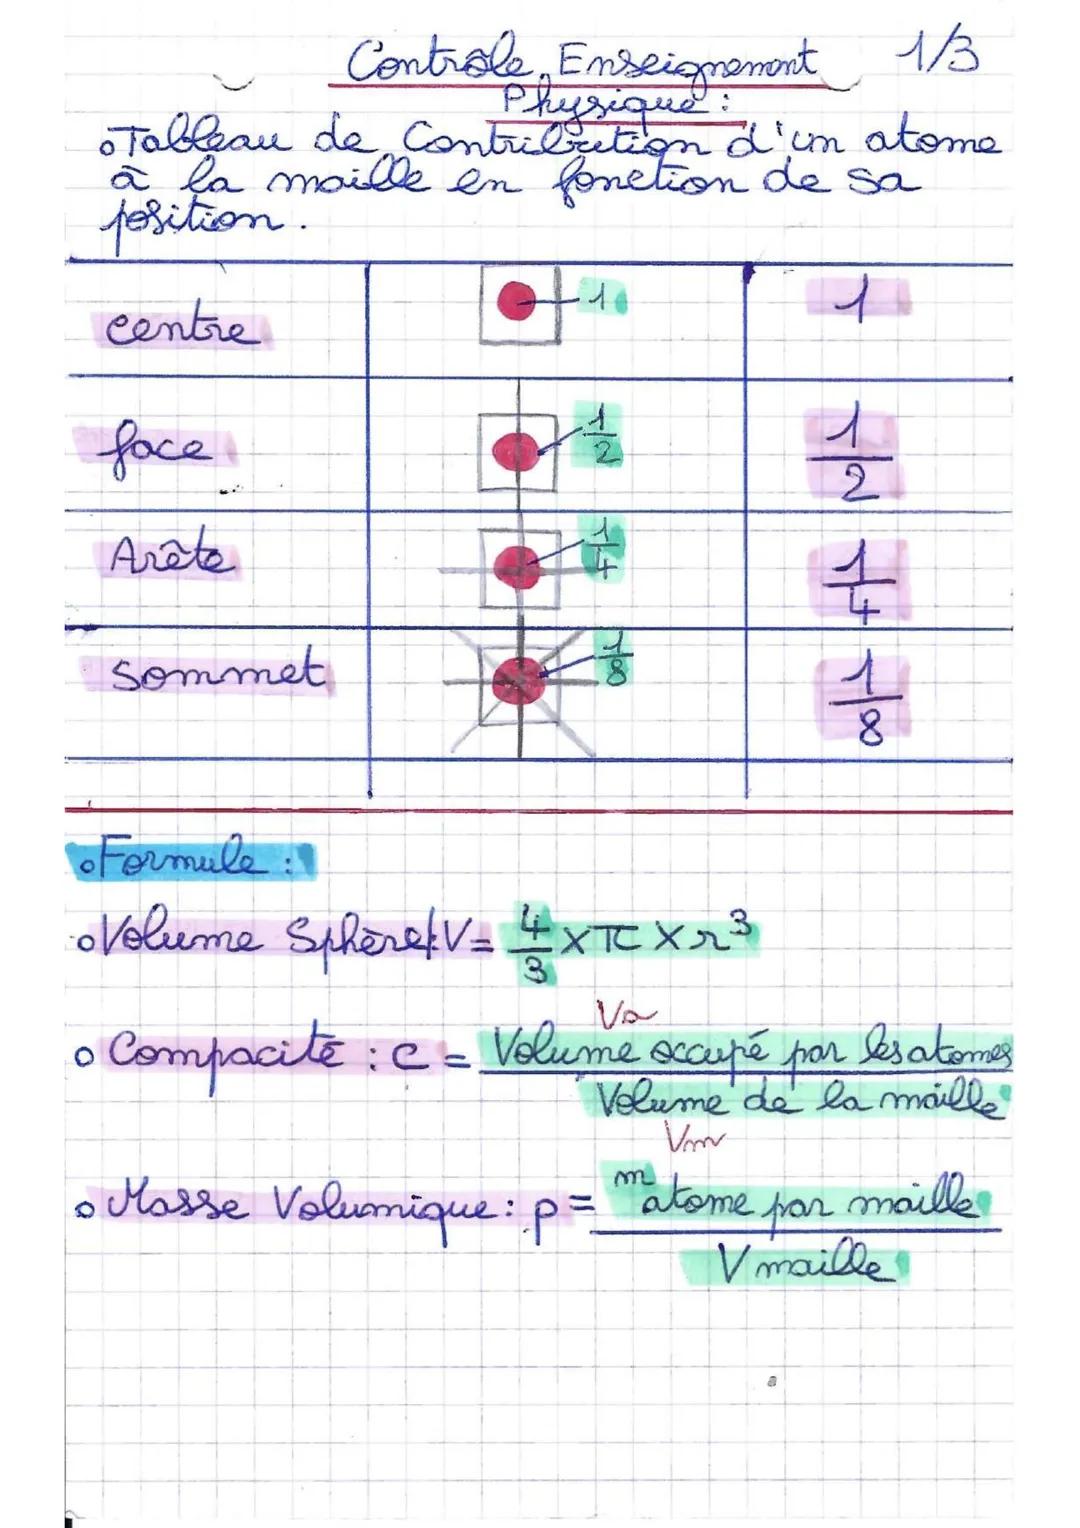 Contrôle Enseignement 1/3
Physique :
Tableau de Contribution d'un atome
à la maille en fonction de sa
position.
centre 1 1
face 1/2 1/2
Arête 1/4 1/4
sommet 1/8 1/8
Formule :
Volume Sphère: V = 4/3 × π × r³
Va
Compacité : c = Volume occupé par les atomes
Volume de la maille
Vm
Masse Volumique : ρ = m atome par maille
V maille